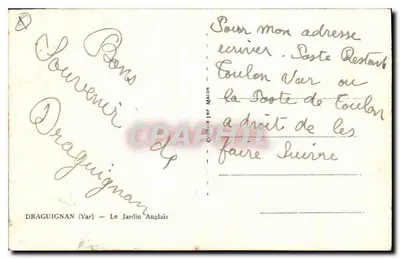 Bons
Souvenir de
Draguignan
Pour mon adresse
ecriver. Poste Restant
Toulon Var ou
la Poste de Toulon
a droit de les
faire Suivre
DRAGUIGNAN (Var) — Le Jardin Anglais
CPAPHIL